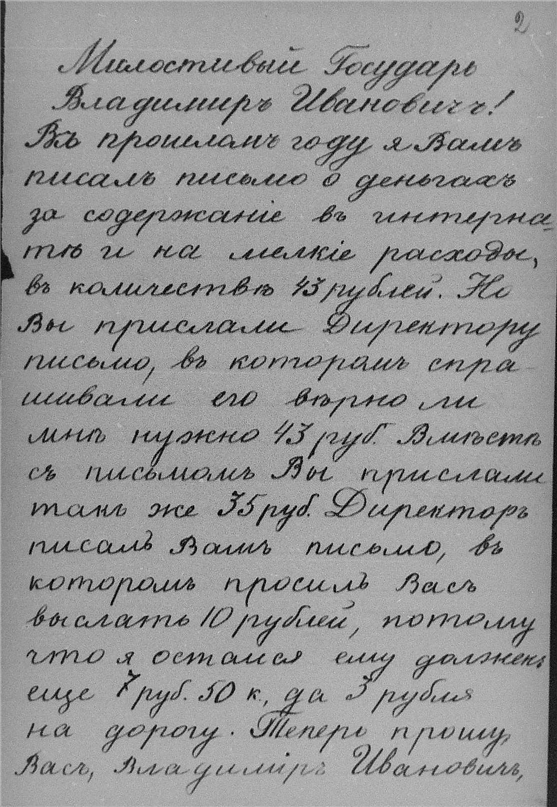 2
Милостивый Государь
Владимиръ Ивановичъ!
Въ прошломъ году я Вамъ
писалъ письмо о деньгахъ
за содержаніе въ интерна-
тѣ и на мелкіе расходы,
въ количествѣ 43 рублей. Но
Вы прислали Директору
письмо, въ которомъ спра-
шивали его вѣрно ли
мнѣ нужно 43 руб. Вмѣстѣ
съ письмомъ Вы прислали
такъ же 35 руб. Директоръ
писалъ Вамъ письмо, въ
которомъ просилъ Васъ
выслать 10 рублей, потому
что я остался ему долженъ
еще 7 руб. 50 к., да 3 рубля
на дорогу. Теперь прошу
Васъ, Владиміръ Ивановичъ,